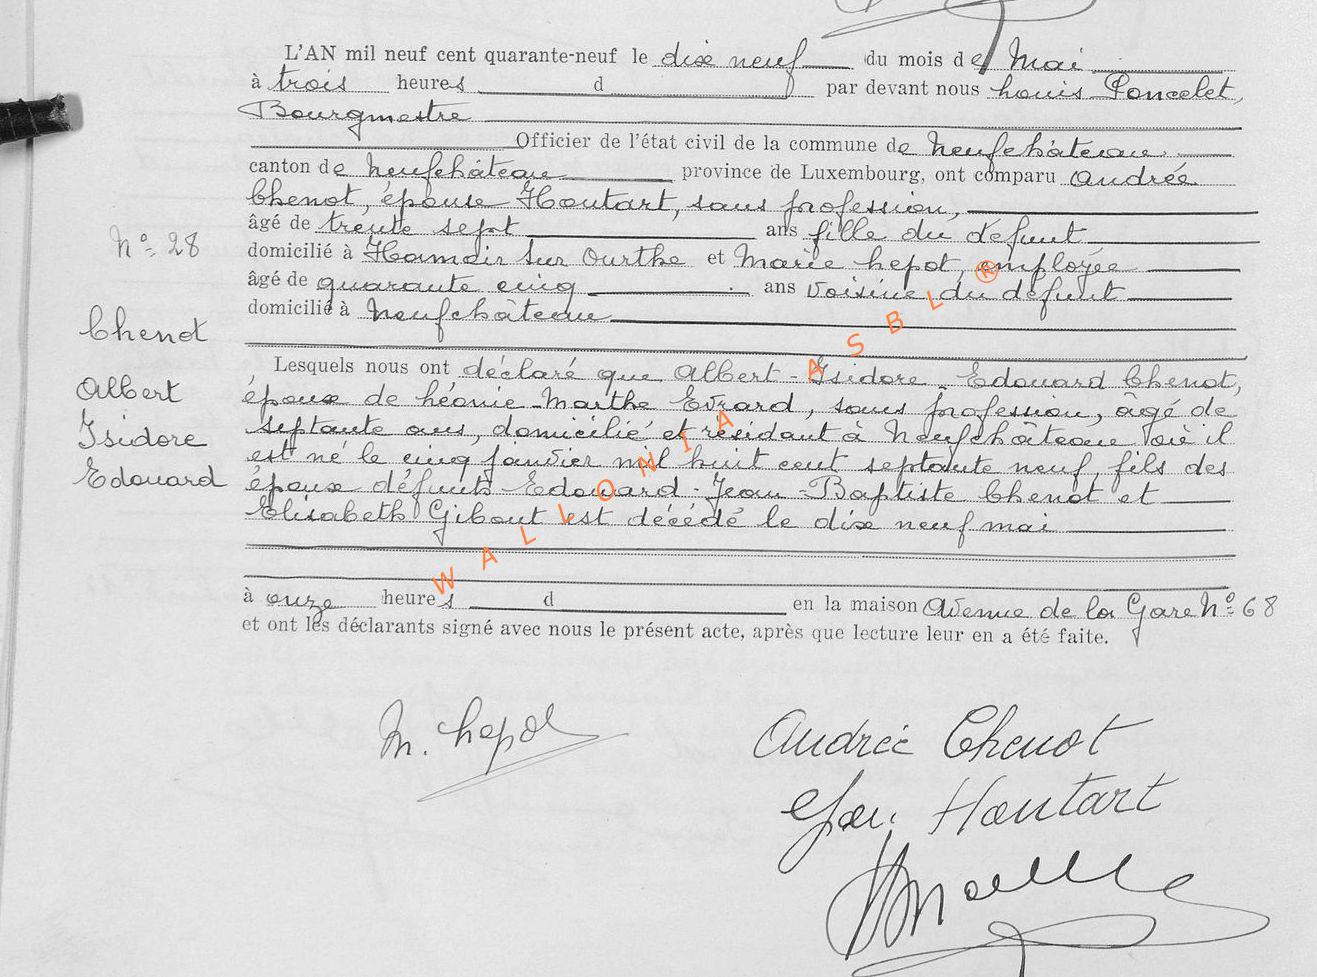 L'AN mil neuf cent quarante-neuf le dix neuf du mois de Mai
à trois heures d par devant nous Louis Poncelet,
Bourgmestre
Officier de l'état civil de la commune de Neufchâteau
canton de Neufchâteau province de Luxembourg, ont comparu Andrée
Chenot, épouse Houtart, sans profession,
âgé de trente sept ans fille du défunt
domicilié à Hamoir sur Ourthe et Marie Lepot, employée
N° 28
âgé de quarante cinq ans voisine du défunt
domicilié à Neufchâteau
Chenot
Albert
Isidore
Edouard
Lesquels nous ont déclaré que Albert-Isidore-Edouard Chenot,
époux de Léonie-Marthe Evrard, sans profession, âgé de
septante ans, domicilié et résidant à Neufchâteau où il
est né le cinq janvier mil huit cent septante neuf, fils des
époux défunts Edouard-Jean-Baptiste Chenot et
Elisabeth Gibout est décédé le dix neuf mai
à onze heures d en la maison Avenue de la Gare N° 68
et ont les déclarants signé avec nous le présent acte, après que lecture leur en a été faite.
WALLONIA ASBL ®
M. Lepot
Andrée Chenot
Houtart